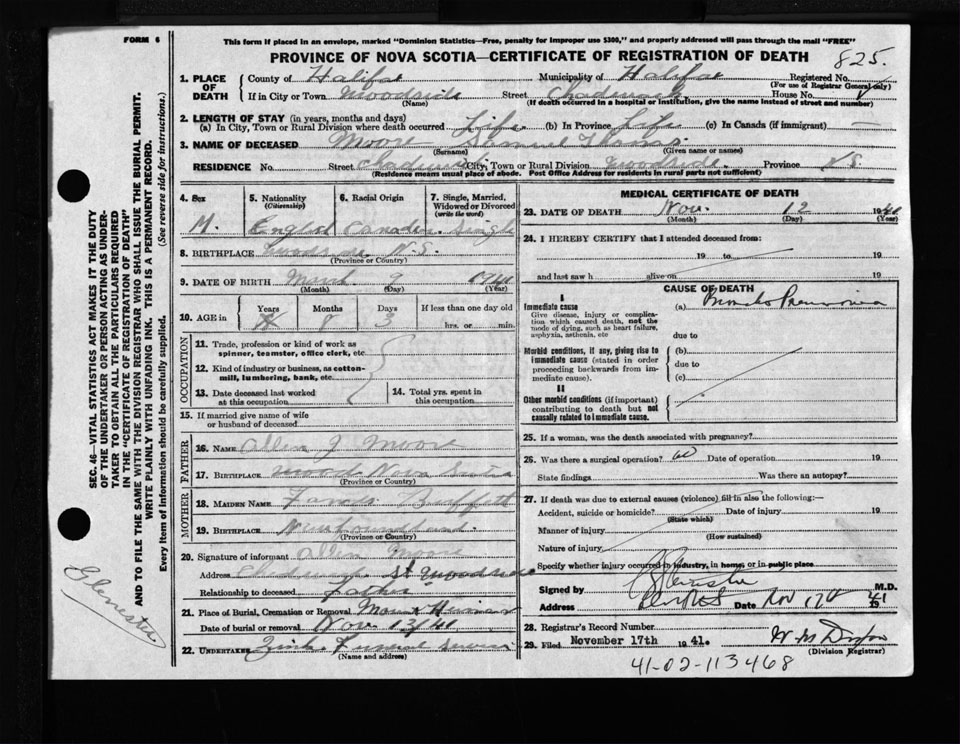 FORM 6
This form if placed in an envelope, marked "Dominion Statistics—Free, penalty for improper use $300," and properly addressed will pass through the mail "FREE"
PROVINCE OF NOVA SCOTIA—CERTIFICATE OF REGISTRATION OF DEATH 825.
1. PLACE OF DEATH
County of Halifax Municipality of Halifax Registered No.
(For use of Registrar General only)
If in City or Town Woodside Street House No.
(Name) (If death occurred in a hospital or institution, give the name instead of street and number)
2. LENGTH OF STAY (in years, months and days)
(a) In City, Town or Rural Division where death occurred Life (b) In Province Life (c) In Canada (if immigrant) —
3. NAME OF DECEASED Moore Samuel Thomas
(Surname) (Given name or names)
RESIDENCE No. Street City, Town or Rural Division Woodside Province N.S.
(Residence means usual place of abode. Post Office Address for residents in rural parts not sufficient)
4. Sex 5. Nationality (Citizenship) 6. Racial Origin 7. Single, Married, Widowed or Divorced (write the word)
M. English Canadian Single
8. BIRTHPLACE Woodside N.S.
(Province or Country)
9. DATE OF BIRTH March 9 1941
(Month) (Day) (Year)
10. AGE in Years Months Days If less than one day old
8 3 hrs. or min.
OCCUPATION
11. Trade, profession or kind of work as spinner, teamster, office clerk, etc
12. Kind of industry or business, as cotton-mill, lumbering, bank, etc.
13. Date deceased last worked at this occupation
14. Total yrs. spent in this occupation
15. If married give name of wife or husband of deceased
FATHER
16. NAME Allen J Moore
17. BIRTHPLACE Nova Scotia
(Province or Country)
MOTHER
18. MAIDEN NAME Buffett
19. BIRTHPLACE Newfoundland
(Province or Country)
20. Signature of informant Allen Moore
Address St Woodside
Relationship to deceased Father
21. Place of Burial, Cremation or Removal Mount Hermon
Date of burial or removal Nov 13/41
22. UNDERTAKER Funeral Service
(Name and address)
MEDICAL CERTIFICATE OF DEATH
23. DATE OF DEATH Nov. 12 1941
(Month) (Day) (Year)
24. I HEREBY CERTIFY that I attended deceased from:
19 to 19
and last saw h alive on 19
CAUSE OF DEATH
I
Immediate cause (a) Broncho Pneumonia
Give disease, injury or complication which caused death, not the mode of dying, such as heart failure, asphyxia, asthenia, etc
due to
Morbid conditions, if any, giving rise to immediate cause (stated in order proceeding backwards from immediate cause).
(b)
due to
(c)
II
Other morbid conditions (if important) contributing to death but not causally related to immediate cause.
25. If a woman, was the death associated with pregnancy?
26. Was there a surgical operation? no Date of operation 19
State findings Was there an autopsy?
27. If death was due to external causes (violence) fill in also the following:—
Accident, suicide or homicide? Date of injury 19
(State which)
Manner of injury
(How sustained)
Nature of injury
Specify whether injury occurred in industry, in home, or in public place
Signed by M.D.
Address Date Nov 17th 1941
28. Registrar's Record Number
29. Filed November 17th 1941.
(Division Registrar)
41-02-113468
SEC. 46—VITAL STATISTICS ACT MAKES IT THE DUTY OF THE UNDERTAKER OR PERSON ACTING AS UNDERTAKER TO OBTAIN ALL THE PARTICULARS REQUIRED IN THE "CERTIFICATE OF REGISTRATION OF DEATH" AND TO FILE THE SAME WITH THE DIVISION REGISTRAR WHO SHALL ISSUE THE BURIAL PERMIT.
WRITE PLAINLY WITH UNFADING INK. THIS IS A PERMANENT RECORD.
Every item of information should be carefully supplied. (See reverse side for instructions.)